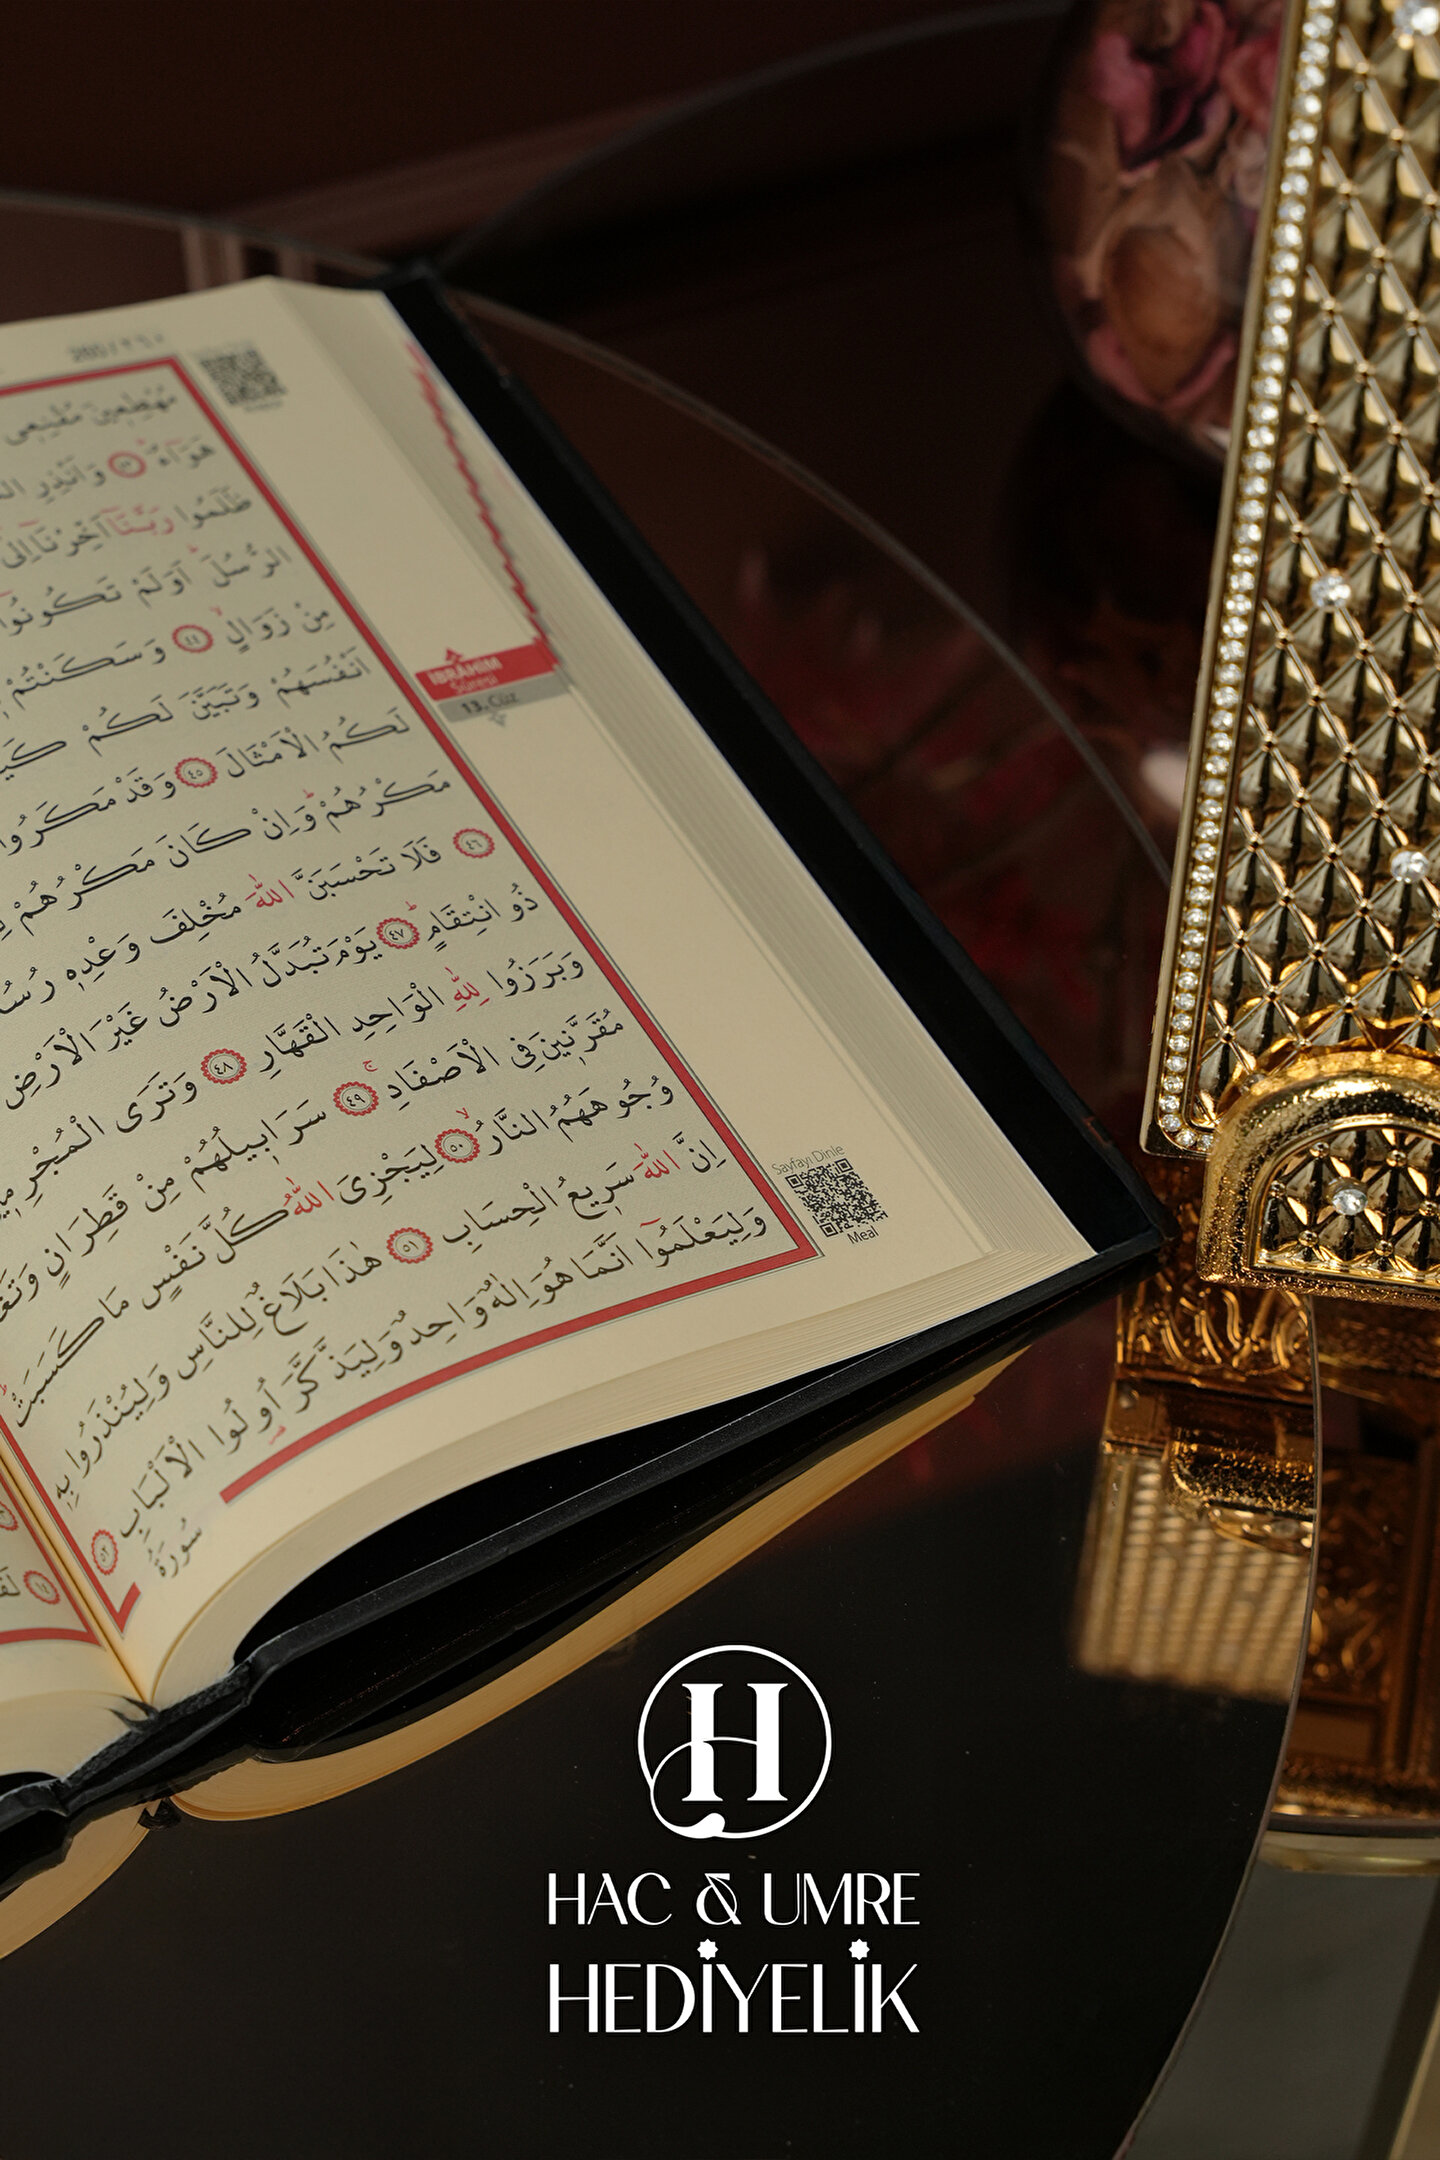 مُهْطِعٖينَ مُقْنِعٖى
هَوَٓاءٌ ﴿٤٣﴾ وَاَنْذِرِ
ظَلَمُوا رَبَّنَٓا اَخِّرْنَٓا اِلٰٓى
الرُّسُلَ اَوَلَمْ تَكُونُٓوا
مِنْ زَوَالٍ ﴿٤٤﴾ وَسَكَنْتُمْ
اَنْفُسَهُمْ وَتَبَيَّنَ لَكُمْ
لَكُمُ الْاَمْثَالَ ﴿٤٥﴾ وَقَدْ مَكَرُوا
مَكْرُهُمْ وَاِنْ كَانَ مَكْرُهُمْ
﴿٤٦﴾ فَلَا تَحْسَبَنَّ اللّٰهَ مُخْلِفَ وَعْدِهٖ
ذُو انْتِقَامٍ ﴿٤٧﴾ يَوْمَ تُبَدَّلُ الْاَرْضُ غَيْرَ الْاَرْضِ
وَبَرَزُوا لِلّٰهِ الْوَاحِدِ الْقَهَّارِ ﴿٤٨﴾ وَتَرَى الْمُجْرِمٖينَ
مُقَرَّنٖينَ فِى الْاَصْفَادِ ﴿٤٩﴾ سَرَابٖيلُهُمْ مِنْ قَطِرَانٍ
وُجُوهَهُمُ النَّارُ ﴿٥٠﴾ لِيَجْزِىَ اللّٰهُ كُلَّ نَفْسٍ مَا كَسَبَتْ
اِنَّ اللّٰهَ سَرٖيعُ الْحِسَابِ ﴿٥١﴾ هٰذَا بَلَاغٌ لِلنَّاسِ وَلِيُنْذَرُوا بِهٖ
وَلِيَعْلَمُٓوا اَنَّمَا هُوَ اِلٰهٌ وَاحِدٌ وَلِيَذَّكَّرَ اُولُوا الْاَلْبَابِ ﴿٥٢﴾
سُورَةُ
IBRÂHİM
Sûresi
13. Cüz
Sayfayı Dinle
Meal
H
HAC & UMRE
HEDİYELİK